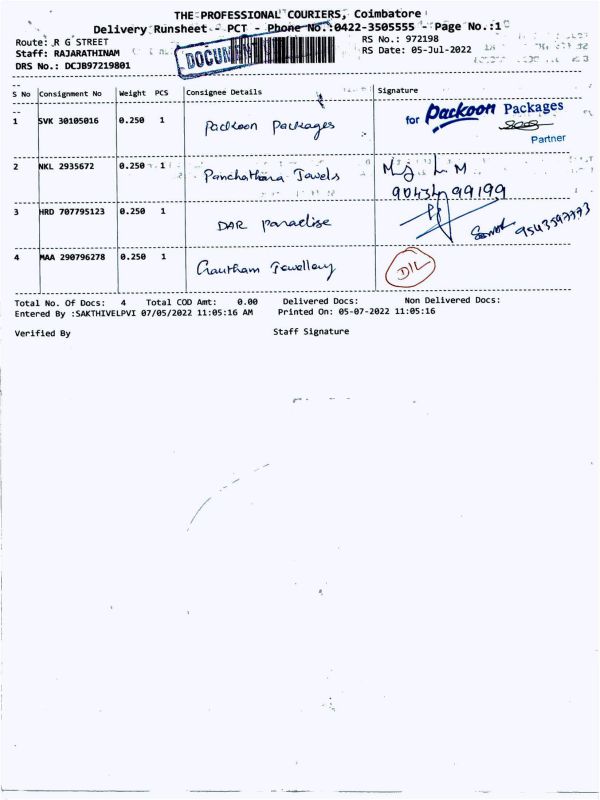 THE PROFESSIONAL COURIERS, Coimbatore
Delivery Runsheet - PCT - Phone No.:0422-3505555 - Page No.:1
Route: R G STREET RS No.: 972198
Staff: RAJARATHINAM DOCUMEN RS Date: 05-Jul-2022
DRS No.: DCJB97219801
S No Consignment No Weight PCS Consignee Details Signature
for Packoon Packages
1 SVK 30105016 0.250 1 Packoon Packages
Partner
2 NKL 2935672 0.250 1 Panchathara Jawels
9043499199
3 HRD 707795123 0.250 1 DAR Paradise
9543597773
4 MAA 290796278 0.250 1 Gautham Jewellery D/L
Total No. Of Docs: 4 Total COD Amt: 0.00 Delivered Docs: Non Delivered Docs:
Entered By :SAKTHIVELPVI 07/05/2022 11:05:16 AM Printed On: 05-07-2022 11:05:16
Verified By Staff Signature